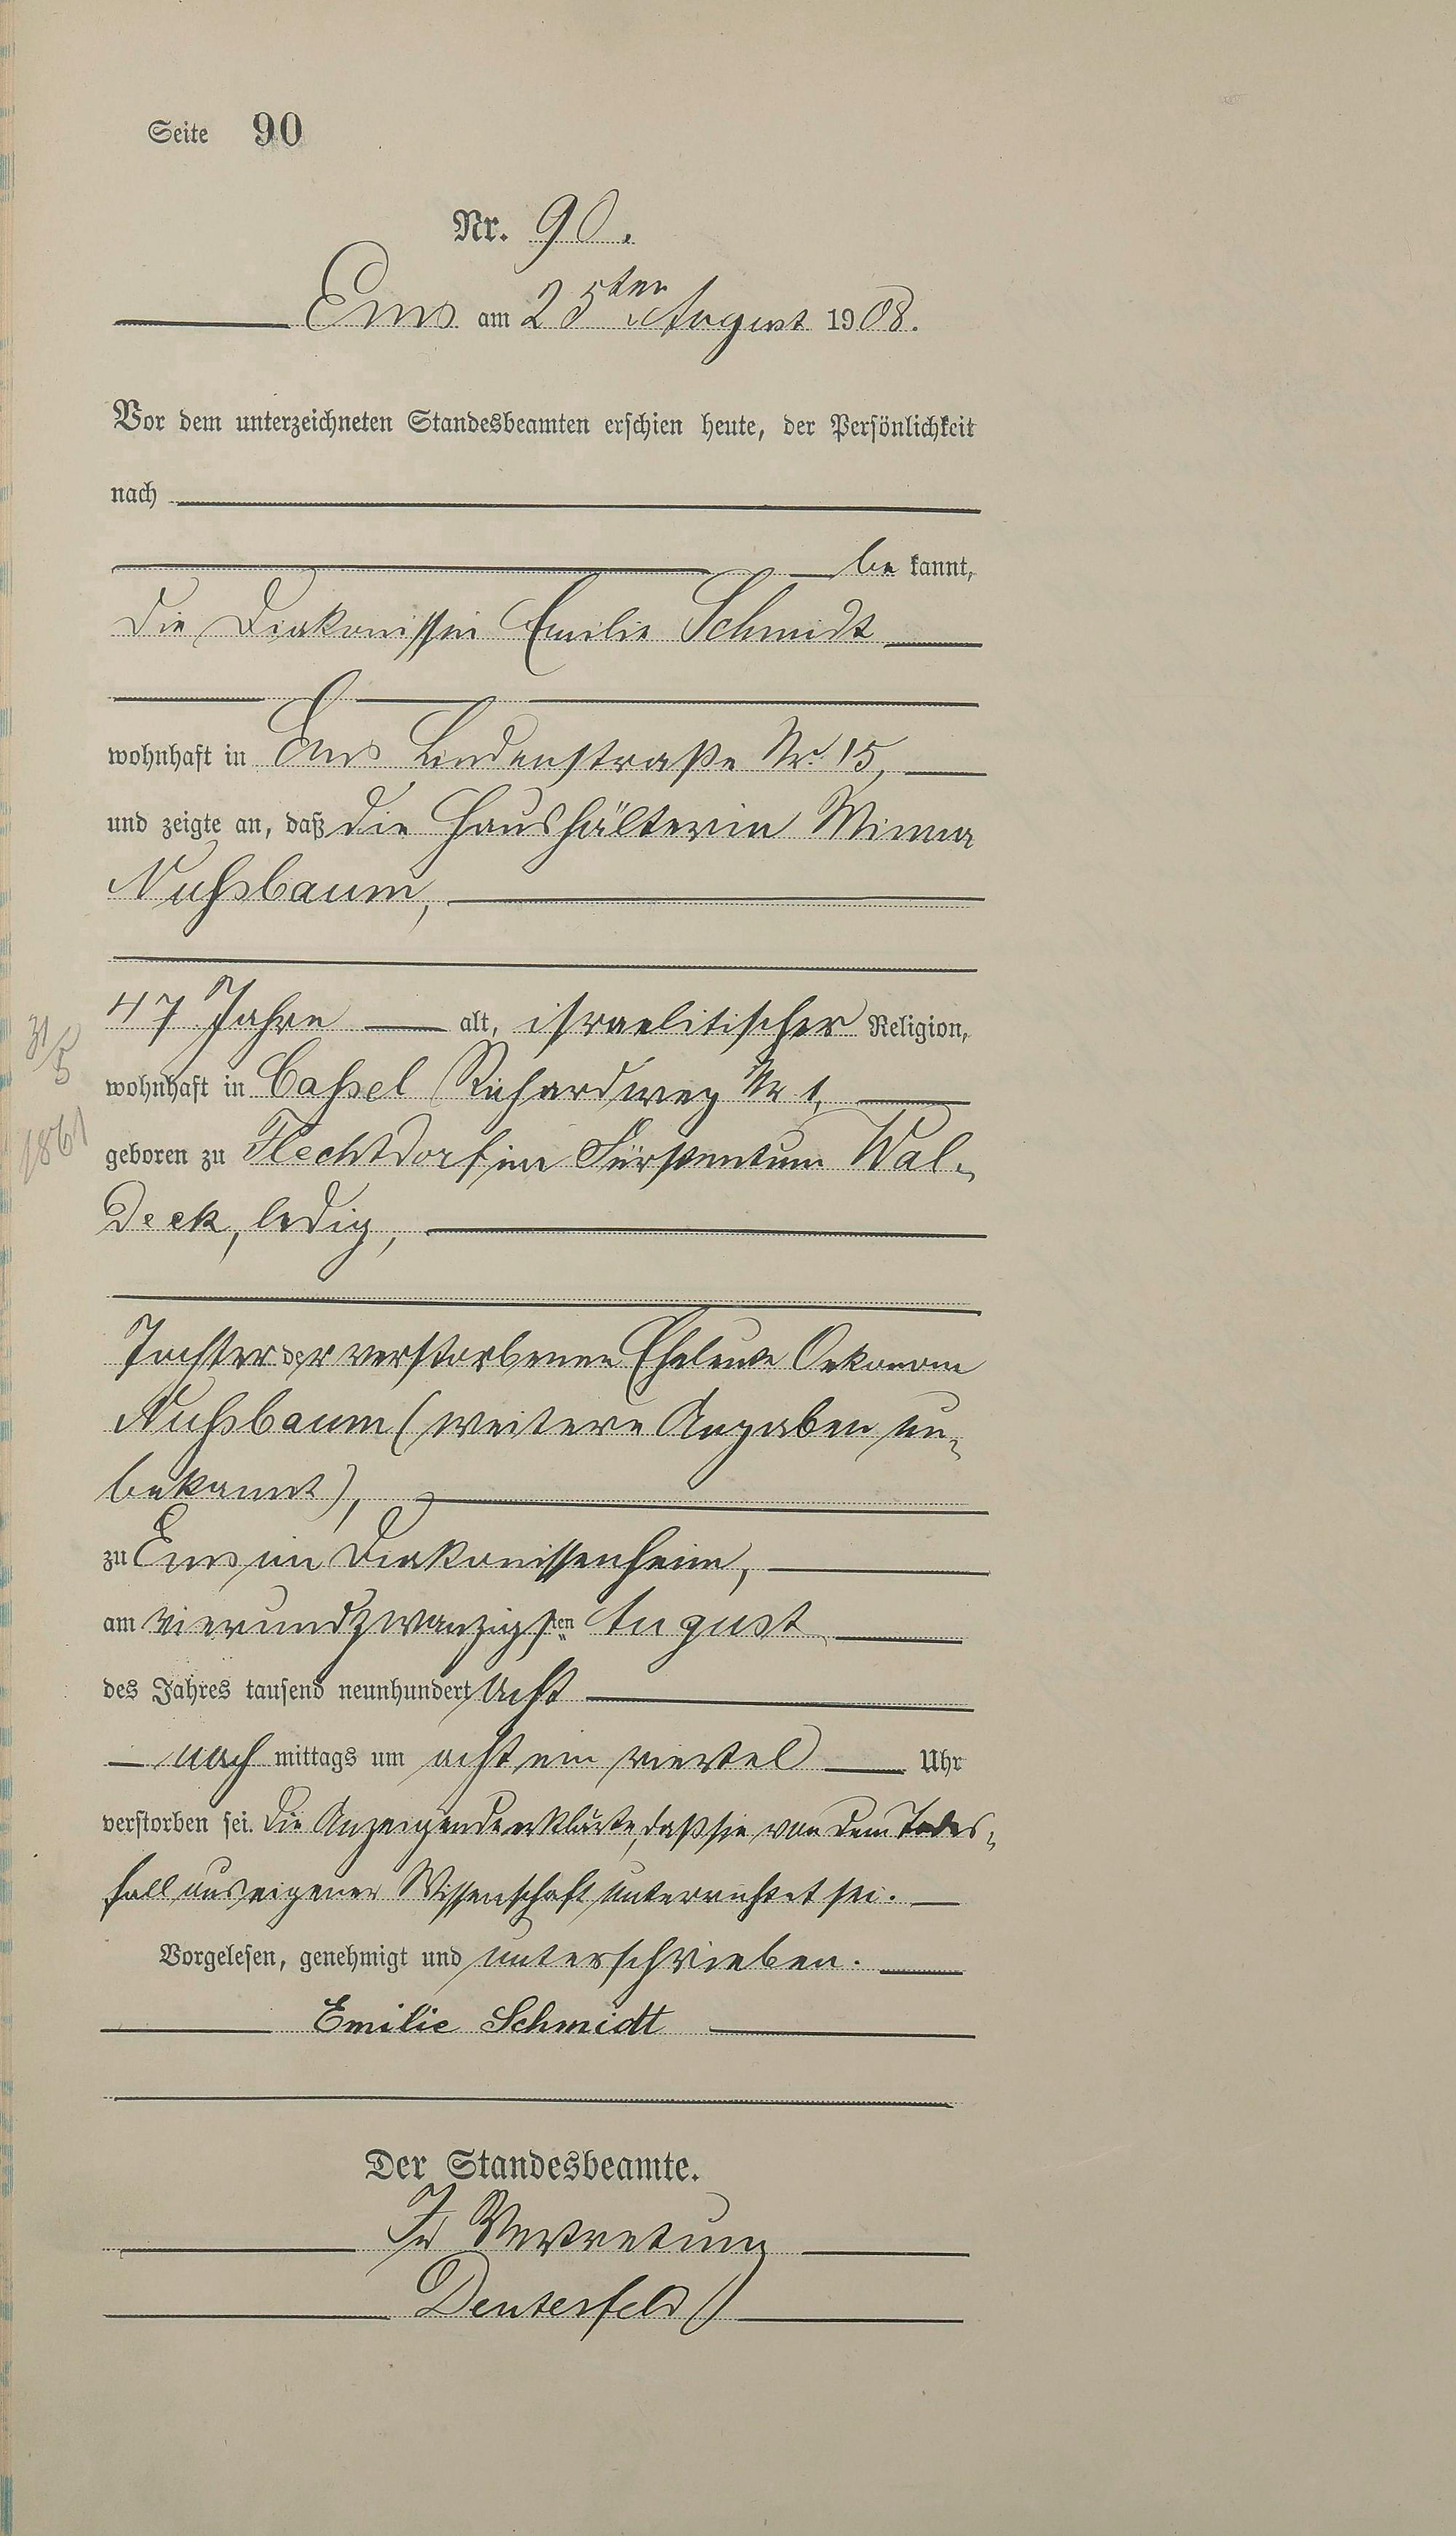 Seite 90
Nr. 90.
Ems am 25ten August 1908.
Vor dem unterzeichneten Standesbeamten erschien heute, der Persönlichkeit
nach
be kannt,
die Diakonissin Emilie Schmidt
wohnhaft in Ems Lindenstraße Nr. 15,
und zeigte an, daß die Haushälterin Minna
Nußbaum,
47 Jahre alt, israelitischer Religion,
31/5
wohnhaft in Cassel Richardweg Nr 1,
1861
geboren zu Flechtdorf im Fürstentum Wal-
deck, ledig,
Tochter der verstorbenen Eheleute Oekonom
Nußbaum (weitere Angaben un-
bekannt),
zu Ems im Diakonissenheim,
am vierundzwanzigsten August
des Jahres tausend neunhundert acht
nach mittags um acht ein viertel Uhr
verstorben sei. Die Anzeigende erklärte, daß sie von dem Todes-
fall aus eigener Wissenschaft unterrichtet sei.
Vorgelesen, genehmigt und unterschrieben.
Emilie Schmidt
Der Standesbeamte.
In Vertretung
Deuterfeld